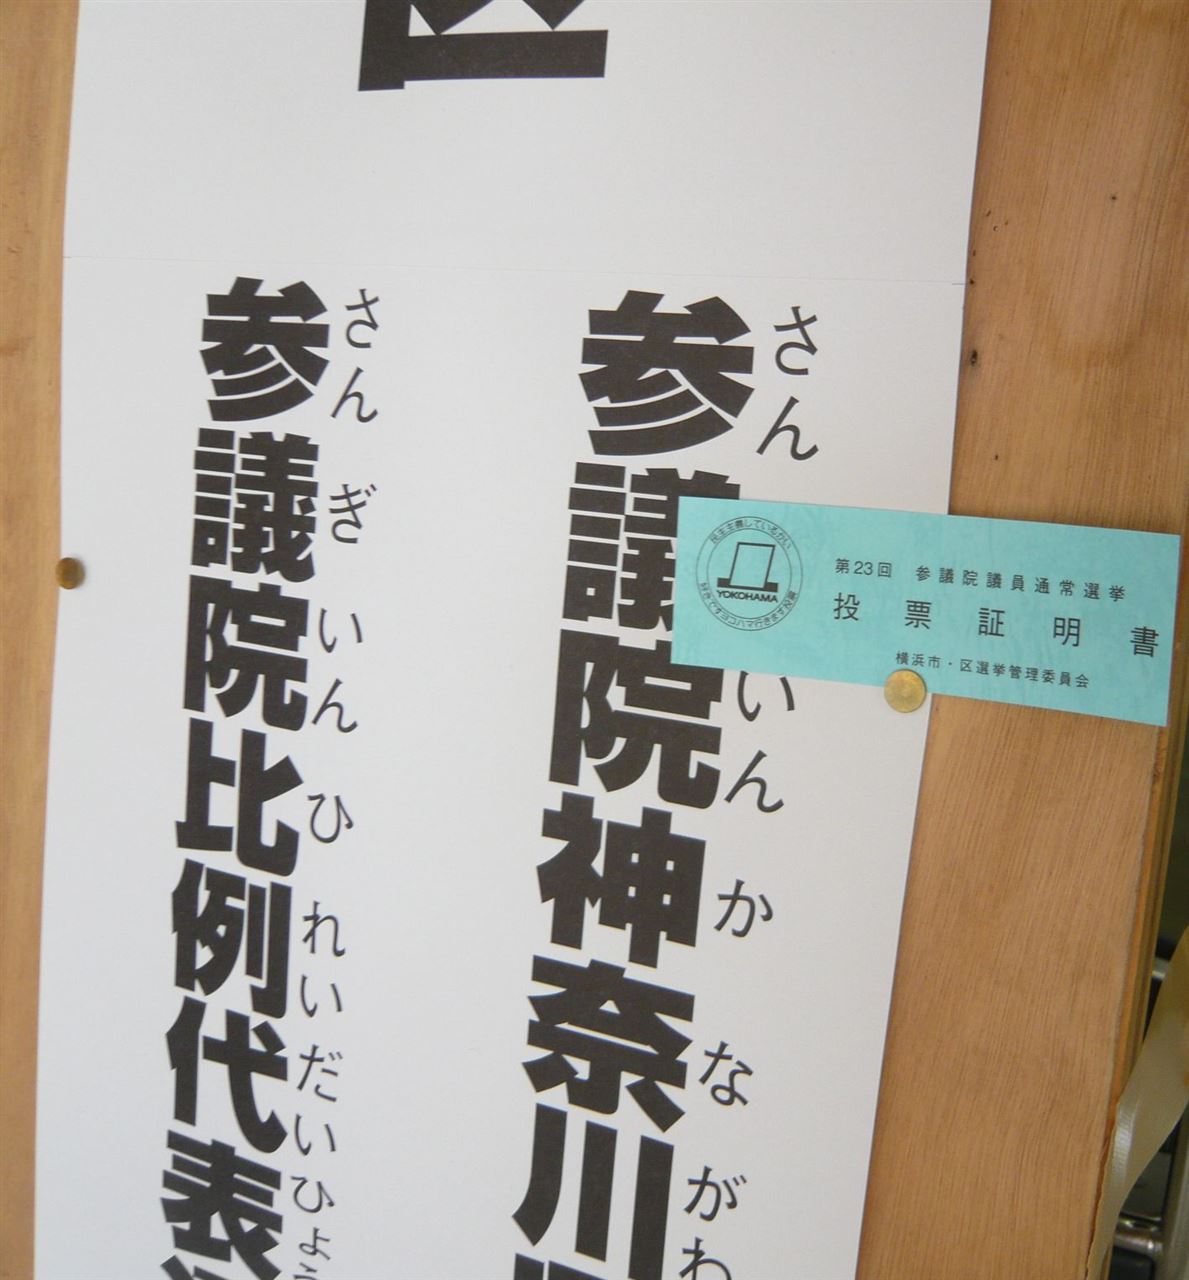 区
さん いんかながわ
参議院神奈川
さんぎいんひれいだいひょう
参議院比例代表
民主主義しているかい
YOKOHAMA
好きですヨコハマ行きます投票
第23回 参議院議員通常選挙
投票証明書
横浜市・区選挙管理委員会